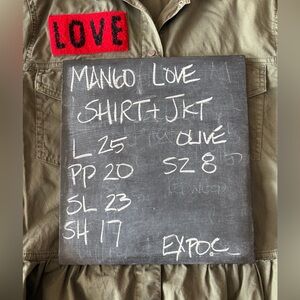 LOVE
MANGO LOVE
SHIRT+ JKT
L 25 OLIVÉ
PP 20 SZ 8
SL 23
SH 17
EXPO.C